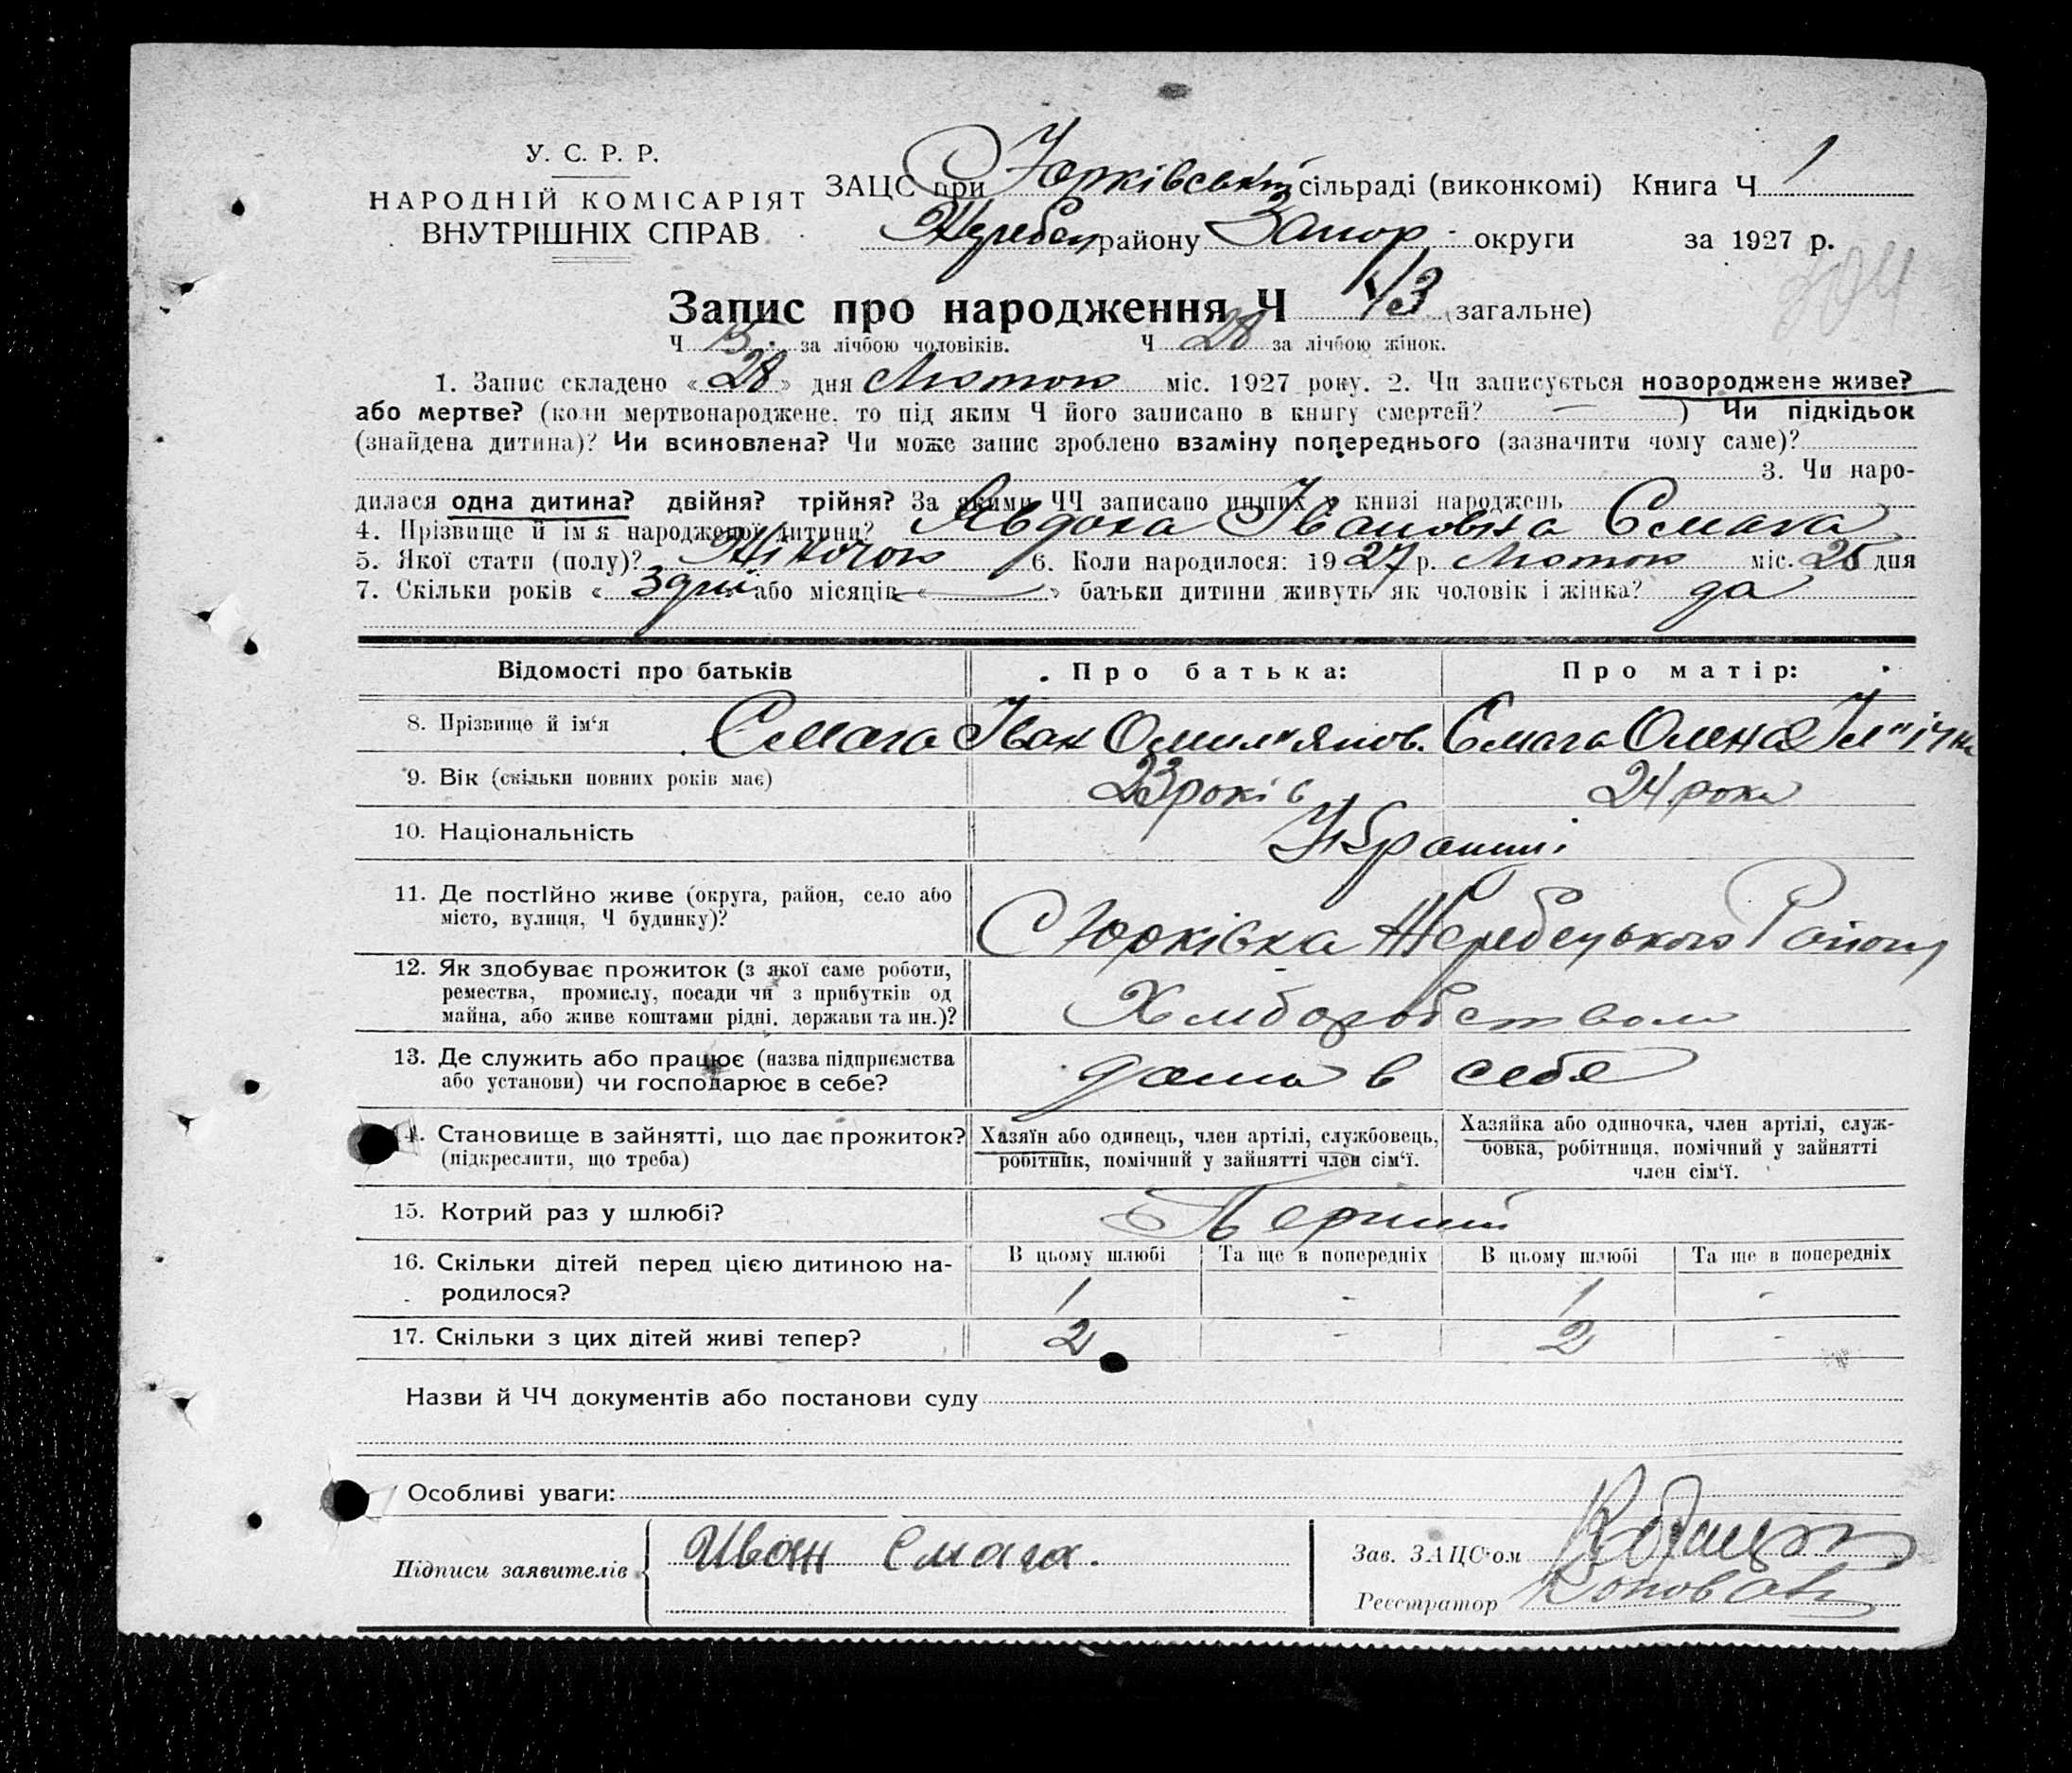 У. С. Р. Р.
НАРОДНІЙ КОМІСАРІЯТ
ВНУТРІШНІХ СПРАВ
ЗАЦС при Юрківській сільраді (виконкомі) Книга Ч 1
району Запор. округи за 1927 р.
Запис про народження Ч 43 (загальне)
Ч 15 за лічбою чоловіків. Ч 28 за лічбою жінок.
1. Запис складено «28» дня Лютого міс. 1927 року. 2. Чи записується новороджене живе?
або мертве? (коли мертвонароджене, то під яким Ч його записано в книгу смертей? — ) Чи підкідьок
(знайдена дитина)? Чи всиновлена? Чи може запис зроблено взаміну попереднього (зазначити чому саме)?
3. Чи наро-
дилася одна дитина? двійня? трійня? За якими ЧЧ записано инших у книзі народжень
4. Прізвище й ім'я народженої дитини? Явдоха Івановна Смага
5. Якої стати (полу)? Жіночого 6. Коли народилося: 1927 р. Лютого міс. 25 дня
7. Скільки років «3 дні» або місяців «—» батьки дитини живуть як чоловік і жінка? да
Відомості про батьків Про батька: Про матір:
8. Прізвище й ім'я Смага Іван Омил'янов. Смага Олена
9. Вік (скільки повних років має) 23 років 24 роки
10. Національність
11. Де постійно живе (округа, район, село або
місто, вулиця, Ч будинку)?
С Юрківка Жеребецького Району
12. Як здобуває прожиток (з якої саме роботи,
ремества, промислу, посади чи з прибутків од
майна, або живе коштами рідні, держави та ин.)?
Хліборобством
13. Де служить або працює (назва підприємства
або установи) чи господарює в себе?
дома в себя
14. Становище в зайнятті, що дає прожиток?
(підкреслити, що треба)
Хазяїн або одинець, член артілі, службовець,
робітник, помічний у зайнятті член сім'ї.
Хазяйка або одиночка, член артілі, служ-
бовка, робітниця, помічний у зайнятті
член сім'ї.
15. Котрий раз у шлюбі? Перший
16. Скільки дітей перед цією дитиною на-
родилося?
В цьому шлюбі Та ще в попередніх В цьому шлюбі Та ще в попередніх
1 - 1 -
17. Скільки з цих дітей живі тепер? 2 - 2 -
Назви й ЧЧ документів або постанови суду
Особливі уваги:
Підписи заявителів Иван Смага.
Зав. ЗАЦС-ом
Реєстратор